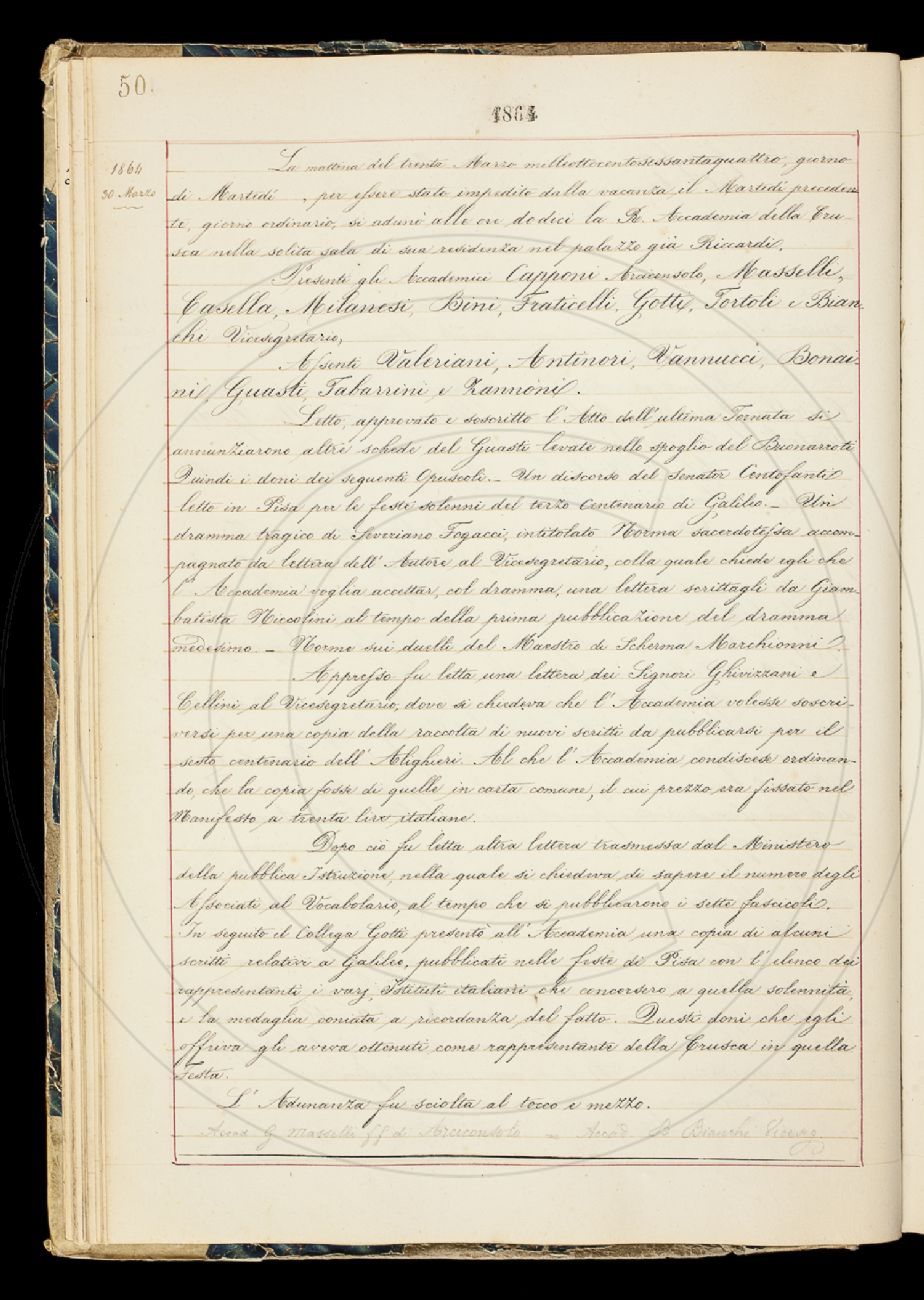 50.
1864
1864
30 Marzo
La mattina del trenta Marzo milleottocentosessantaquattro, giorno
di Martedì , per essere stato impedito dalla vacanza il Martedì preceden
te, giorno ordinario, si adunò alle ore dodici la R. Accademia della Cru-
sca nella solita sala di sua residenza nel palazzo già Riccardi.
Presenti gli Accademici Capponi Arciconsolo, Masselli,
Casella, Milanesi, Bini, Fraticelli, Gotti, Tortoli e Bian-
chi Vicesegretario,
Assenti Valeriani, Antinori, Vannucci, Bonai-
ni, Guasti, Tabarrini e Zannoni.
Letto, approvato e soscritto l' Atto dell' ultima Tornata si
annunziarono altre schede del Guasti levate nello spoglio del Buonarroti
Quindi i doni dei seguenti Opuscoli. _ Un discorso del Senator Centofanti
letto in Pisa per le feste solenni del terzo Centenario di Galileo. _ Un
dramma tragico di Severiano Fogacci, intitolato Norma sacerdotessa accom-
pagnato da lettera dell' Autore al Vicesegretario, colla quale chiede egli che
l' Accademia voglia accettar, col dramma, una lettera scrittagli da Giam-
batista Niccolini al tempo della prima pubblicazione del dramma
medesimo. _ Norme sui duelli del Maestro di Scherma Marchionni.
Appresso fu letta una lettera dei Signori Ghivizzani e
Cellini al Vicesegretario, dove si chiedeva che l' Accademia volesse soscri-
versi per una copia della raccolta di nuovi scritti da pubblicarsi per il
sesto centenario dell' Alighieri. Al che l' Accademia condiscese ordinan-
do, che la copia fosse di quelle in carta comune, il cui prezzo era fissato nel
Manifesto a trenta lire italiane.
Dopo ciò fu letta altra lettera trasmessa dal Ministero
della pubblica Istruzione, nella quale si chiedeva di sapere il numero degli
Associati al Vocabolario, al tempo che si pubblicarono i sette fascicoli.
In seguito il Collega Gotti presentò all' Accademia una copia di alcuni
scritti relativi a Galileo, pubblicati nelle feste di Pisa con l' elenco dei
rappresentanti i varj Istituti italiani che concorsero a quella solennità,
e la medaglia coniata a ricordanza del fatto. Questi doni che egli
offriva gli aveva ottenuti come rappresentante della Crusca in quella
Festa.
L' Adunanza fu sciolta al tocco e mezzo.
Accad G Masselli ff di Arciconsolo _ Accad. B Bianchi Viceseg.